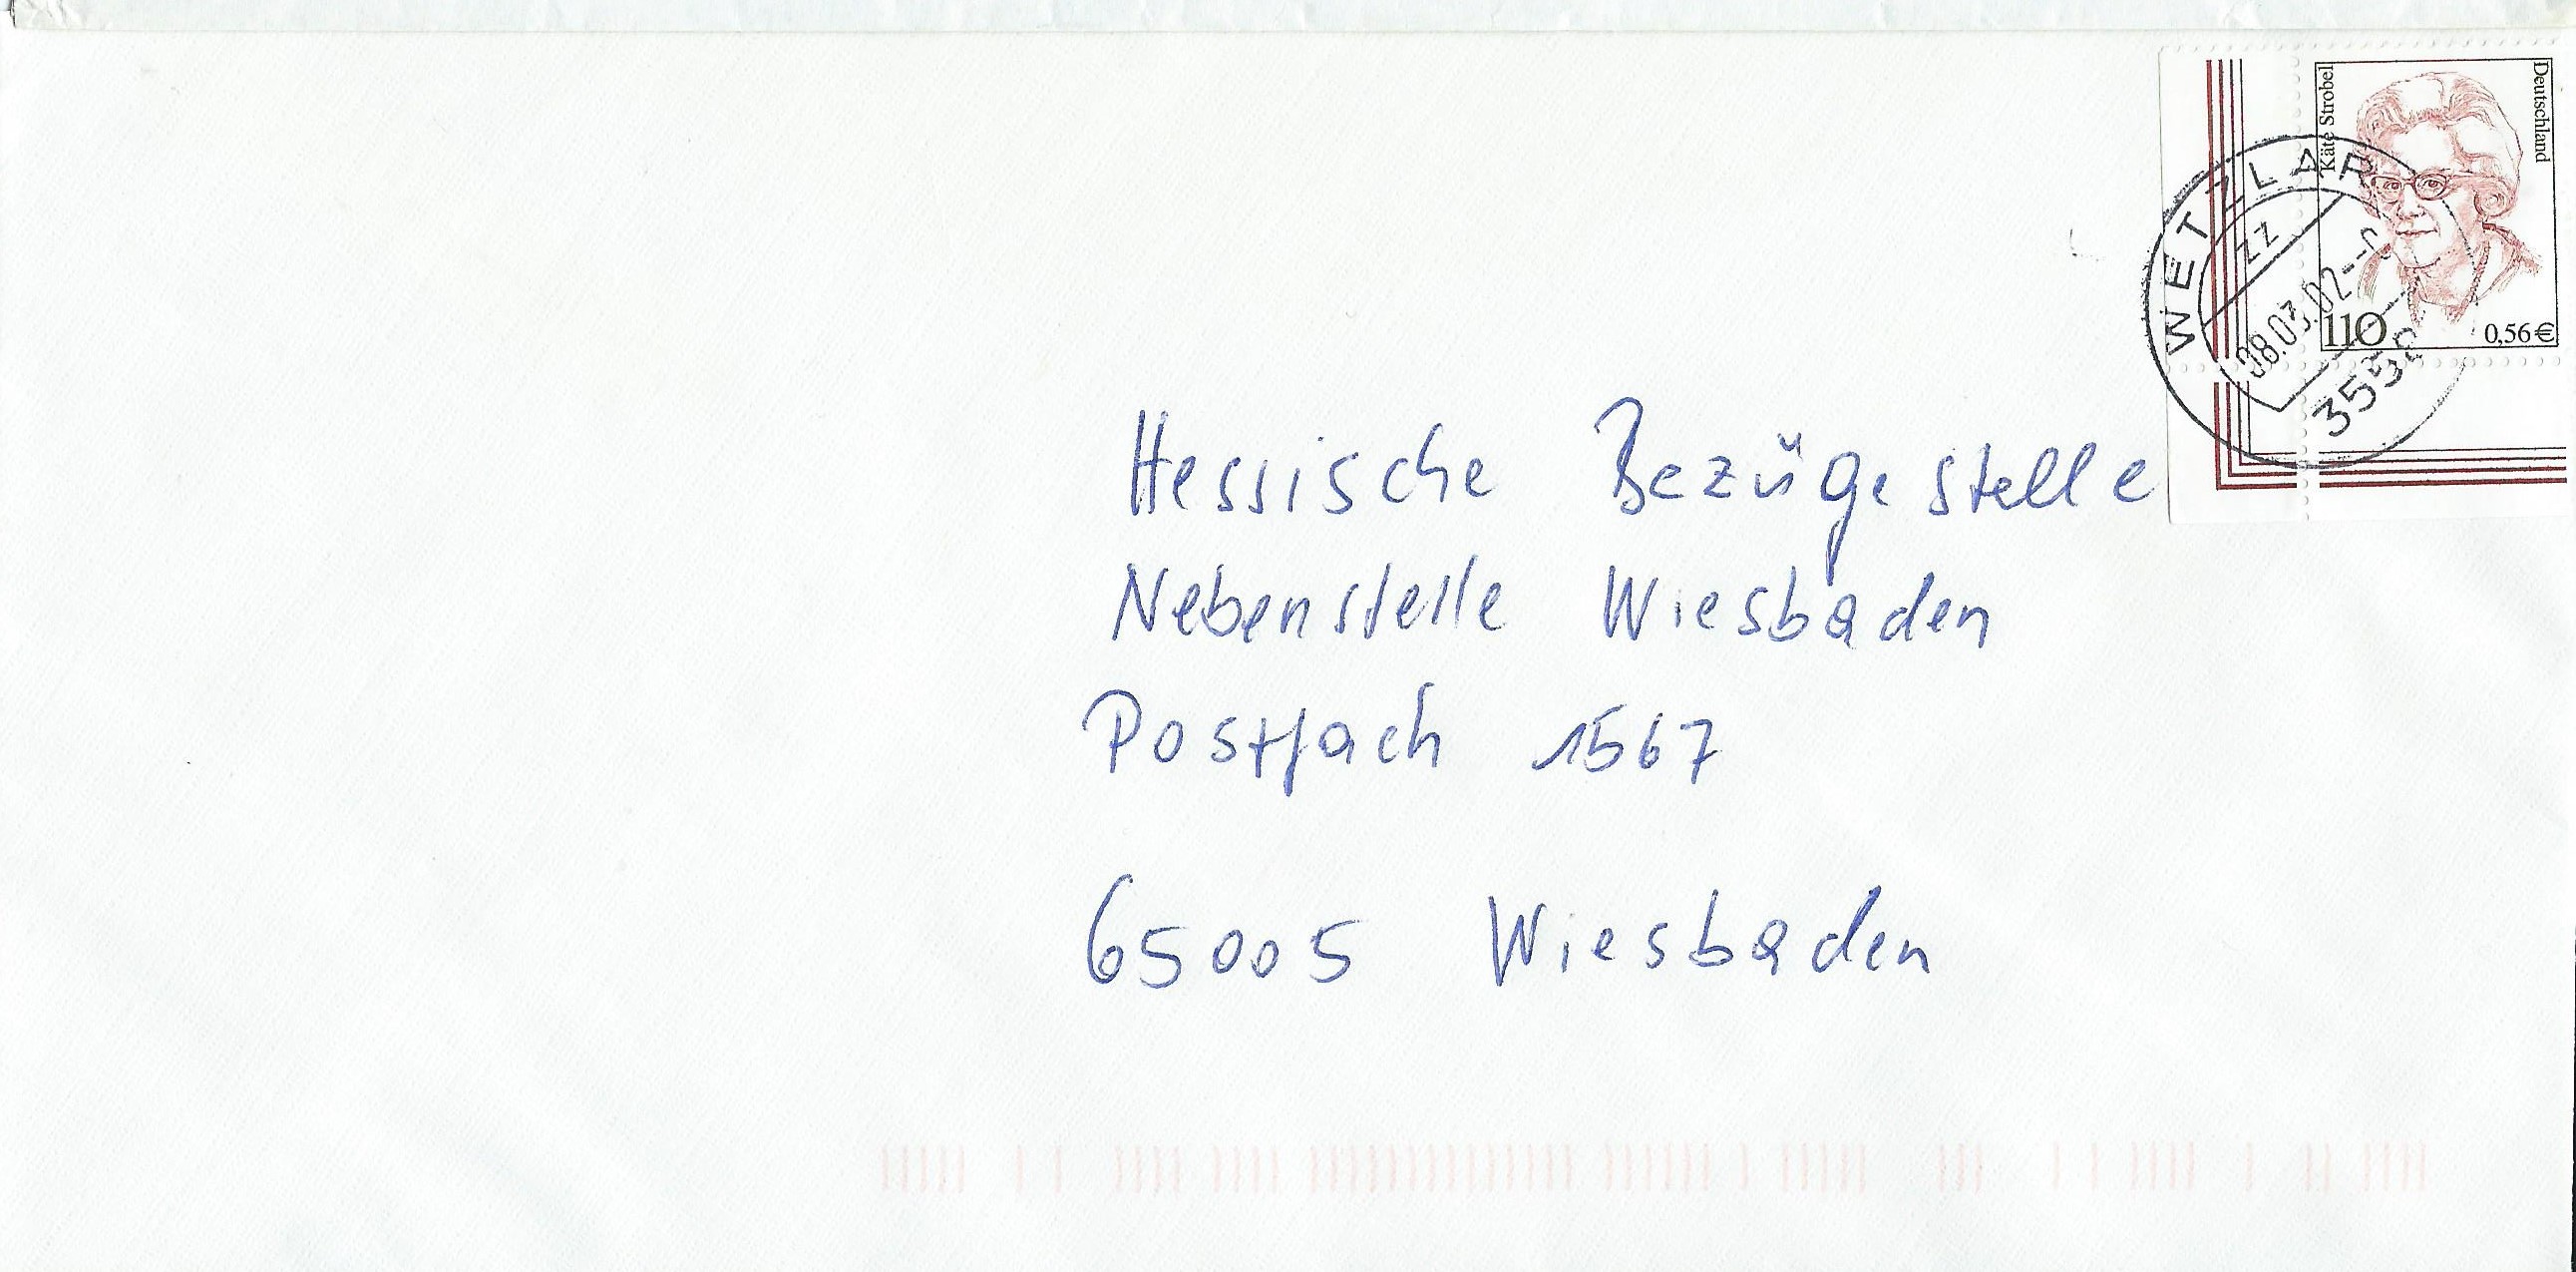 Käte Strobel
Deutschland
110
0,56€
WETZLAR
zz
08.03.02
Hessische Bezügestelle
Nebenstelle Wiesbaden
Postfach 1567
65005 Wiesbaden